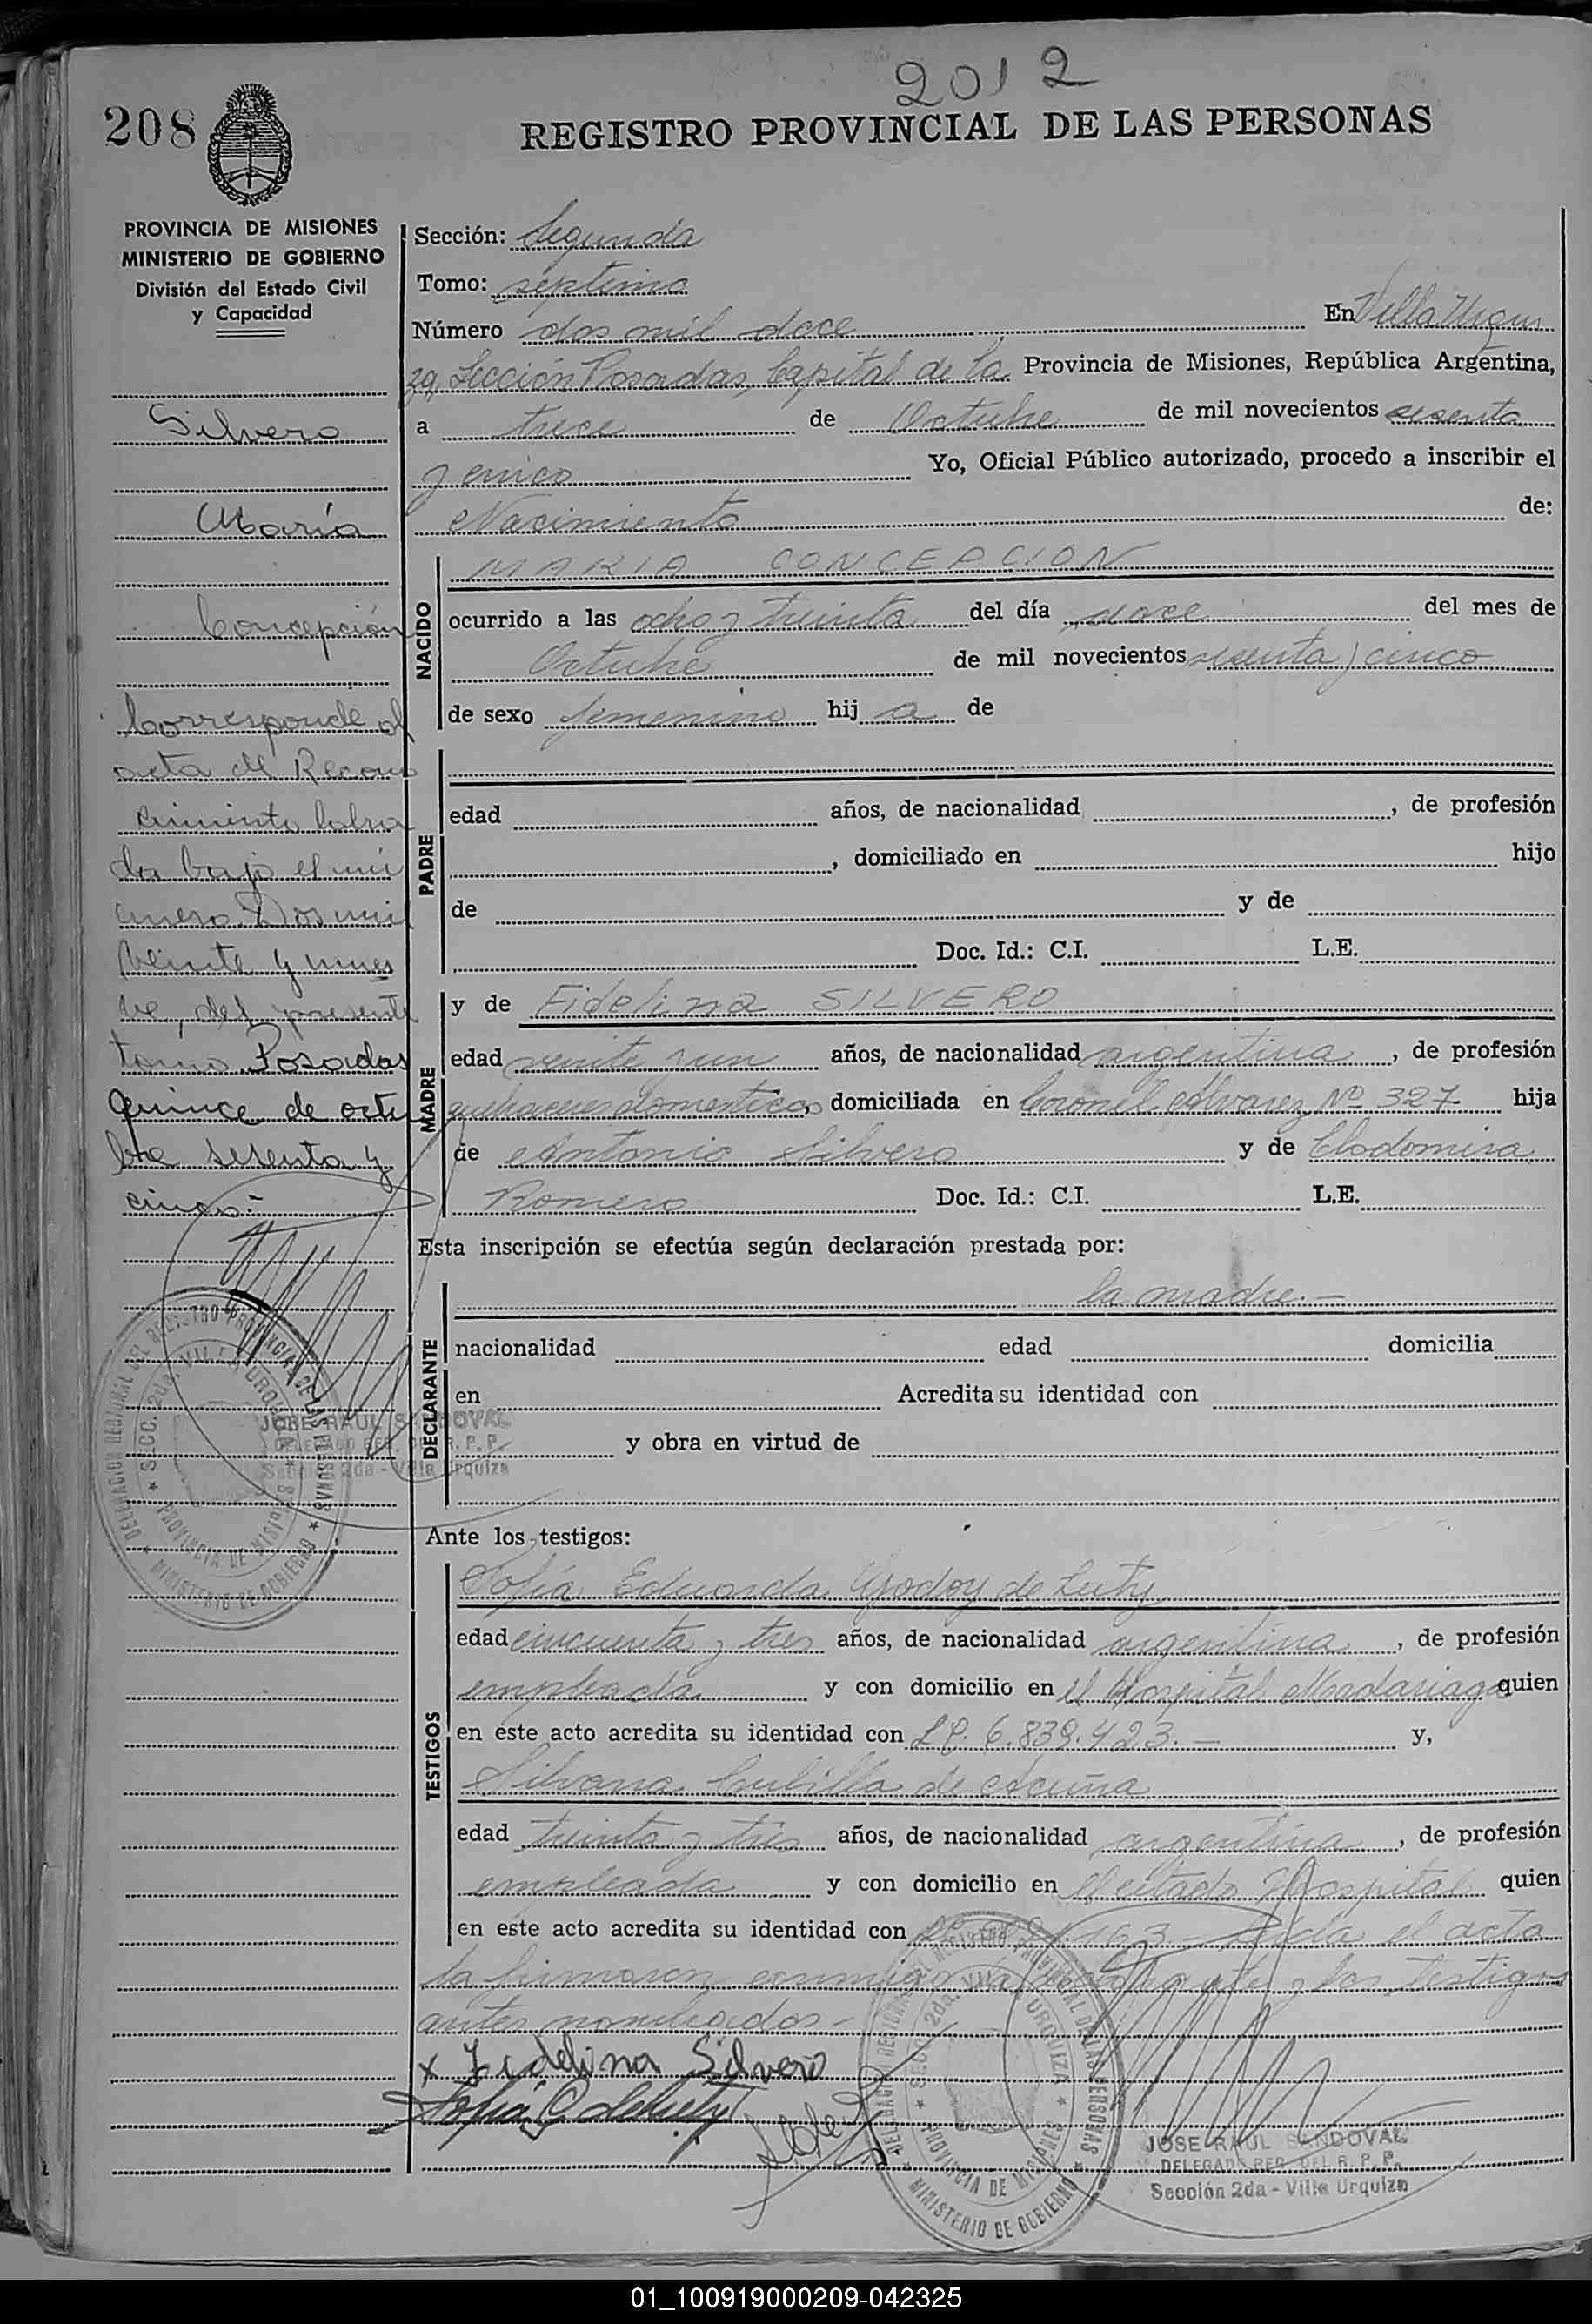 2012
208
REGISTRO PROVINCIAL DE LAS PERSONAS
PROVINCIA DE MISIONES
MINISTERIO DE GOBIERNO
División del Estado Civil
y Capacidad
Silvero
María
Concepción
Corresponde al
acta de Recono
cimiento labra
da bajo el nú
mero Dos mil
veinte y nue
ve, del presente
tomo Posadas
Quince de octu
bre sesenta y
cinco.-
Sección: Segunda
Tomo: septimo
Número dos mil doce En Villa Urqui
za, Sección Posadas, Capital de la Provincia de Misiones, República Argentina,
a trece de Octubre de mil novecientos sesenta
y cinco Yo, Oficial Público autorizado, procedo a inscribir el
Nacimiento de:
NACIDO
MARIA CONCEPCION
ocurrido a las ocho y treinta del día doce del mes de
Octubre de mil novecientos sesenta y cinco
de sexo femenino hij a de
PADRE
edad años, de nacionalidad , de profesión
, domiciliado en hijo
de y de
Doc. Id.: C.I. L.E.
MADRE
y de Fidelina SILVERO
edad veinte y un años, de nacionalidad argentina , de profesión
quehaceres domesticos, domiciliada en Coronel Alvarez Nº 327 hija
de Antonio Silvero y de Clodomira
Romero Doc. Id.: C.I. L.E.
Esta inscripción se efectúa según declaración prestada por:
DECLARANTE
la madre.-
nacionalidad edad domicilia
en Acredita su identidad con
y obra en virtud de
Ante los testigos:
TESTIGOS
Sofía Eduarda Godoy de
edad cincuenta y tres años, de nacionalidad argentina , de profesión
empleada y con domicilio en el Hospital Madariaga quien
en este acto acredita su identidad con 6.839.423.- y,
Silvana Cubilla de Acuña
edad treinta y tres años, de nacionalidad argentina , de profesión
empleada y con domicilio en el citado Hospital quien
en este acto acredita su identidad con 163 - Leida el acta
la firmaron conmigo la declarante y los testigos
antes nombrados-
x Fidelina Silvero
DELEGACION REGIONAL DEL REGISTRO PROVINCIAL DE LAS PERSONAS
SECC. 2da. VILLA URQUIZA
PROVINCIA DE MISIONES
MINISTERIO DE GOBIERNO
JOSE RAUL SANDOVAL
DELEGADO REG. DEL R. P. P.
Sección 2da - Villa Urquiza
DELEGACION REGIONAL DEL REGISTRO PROVINCIAL DE LAS PERSONAS
SECC. 2da. VILLA URQUIZA
PROVINCIA DE MISIONES
MINISTERIO DE GOBIERNO
JOSE RAUL SANDOVAL
DELEGADO REG. DEL R. P. P.
Sección 2da - Villa Urquiza
01_100919000209-042325